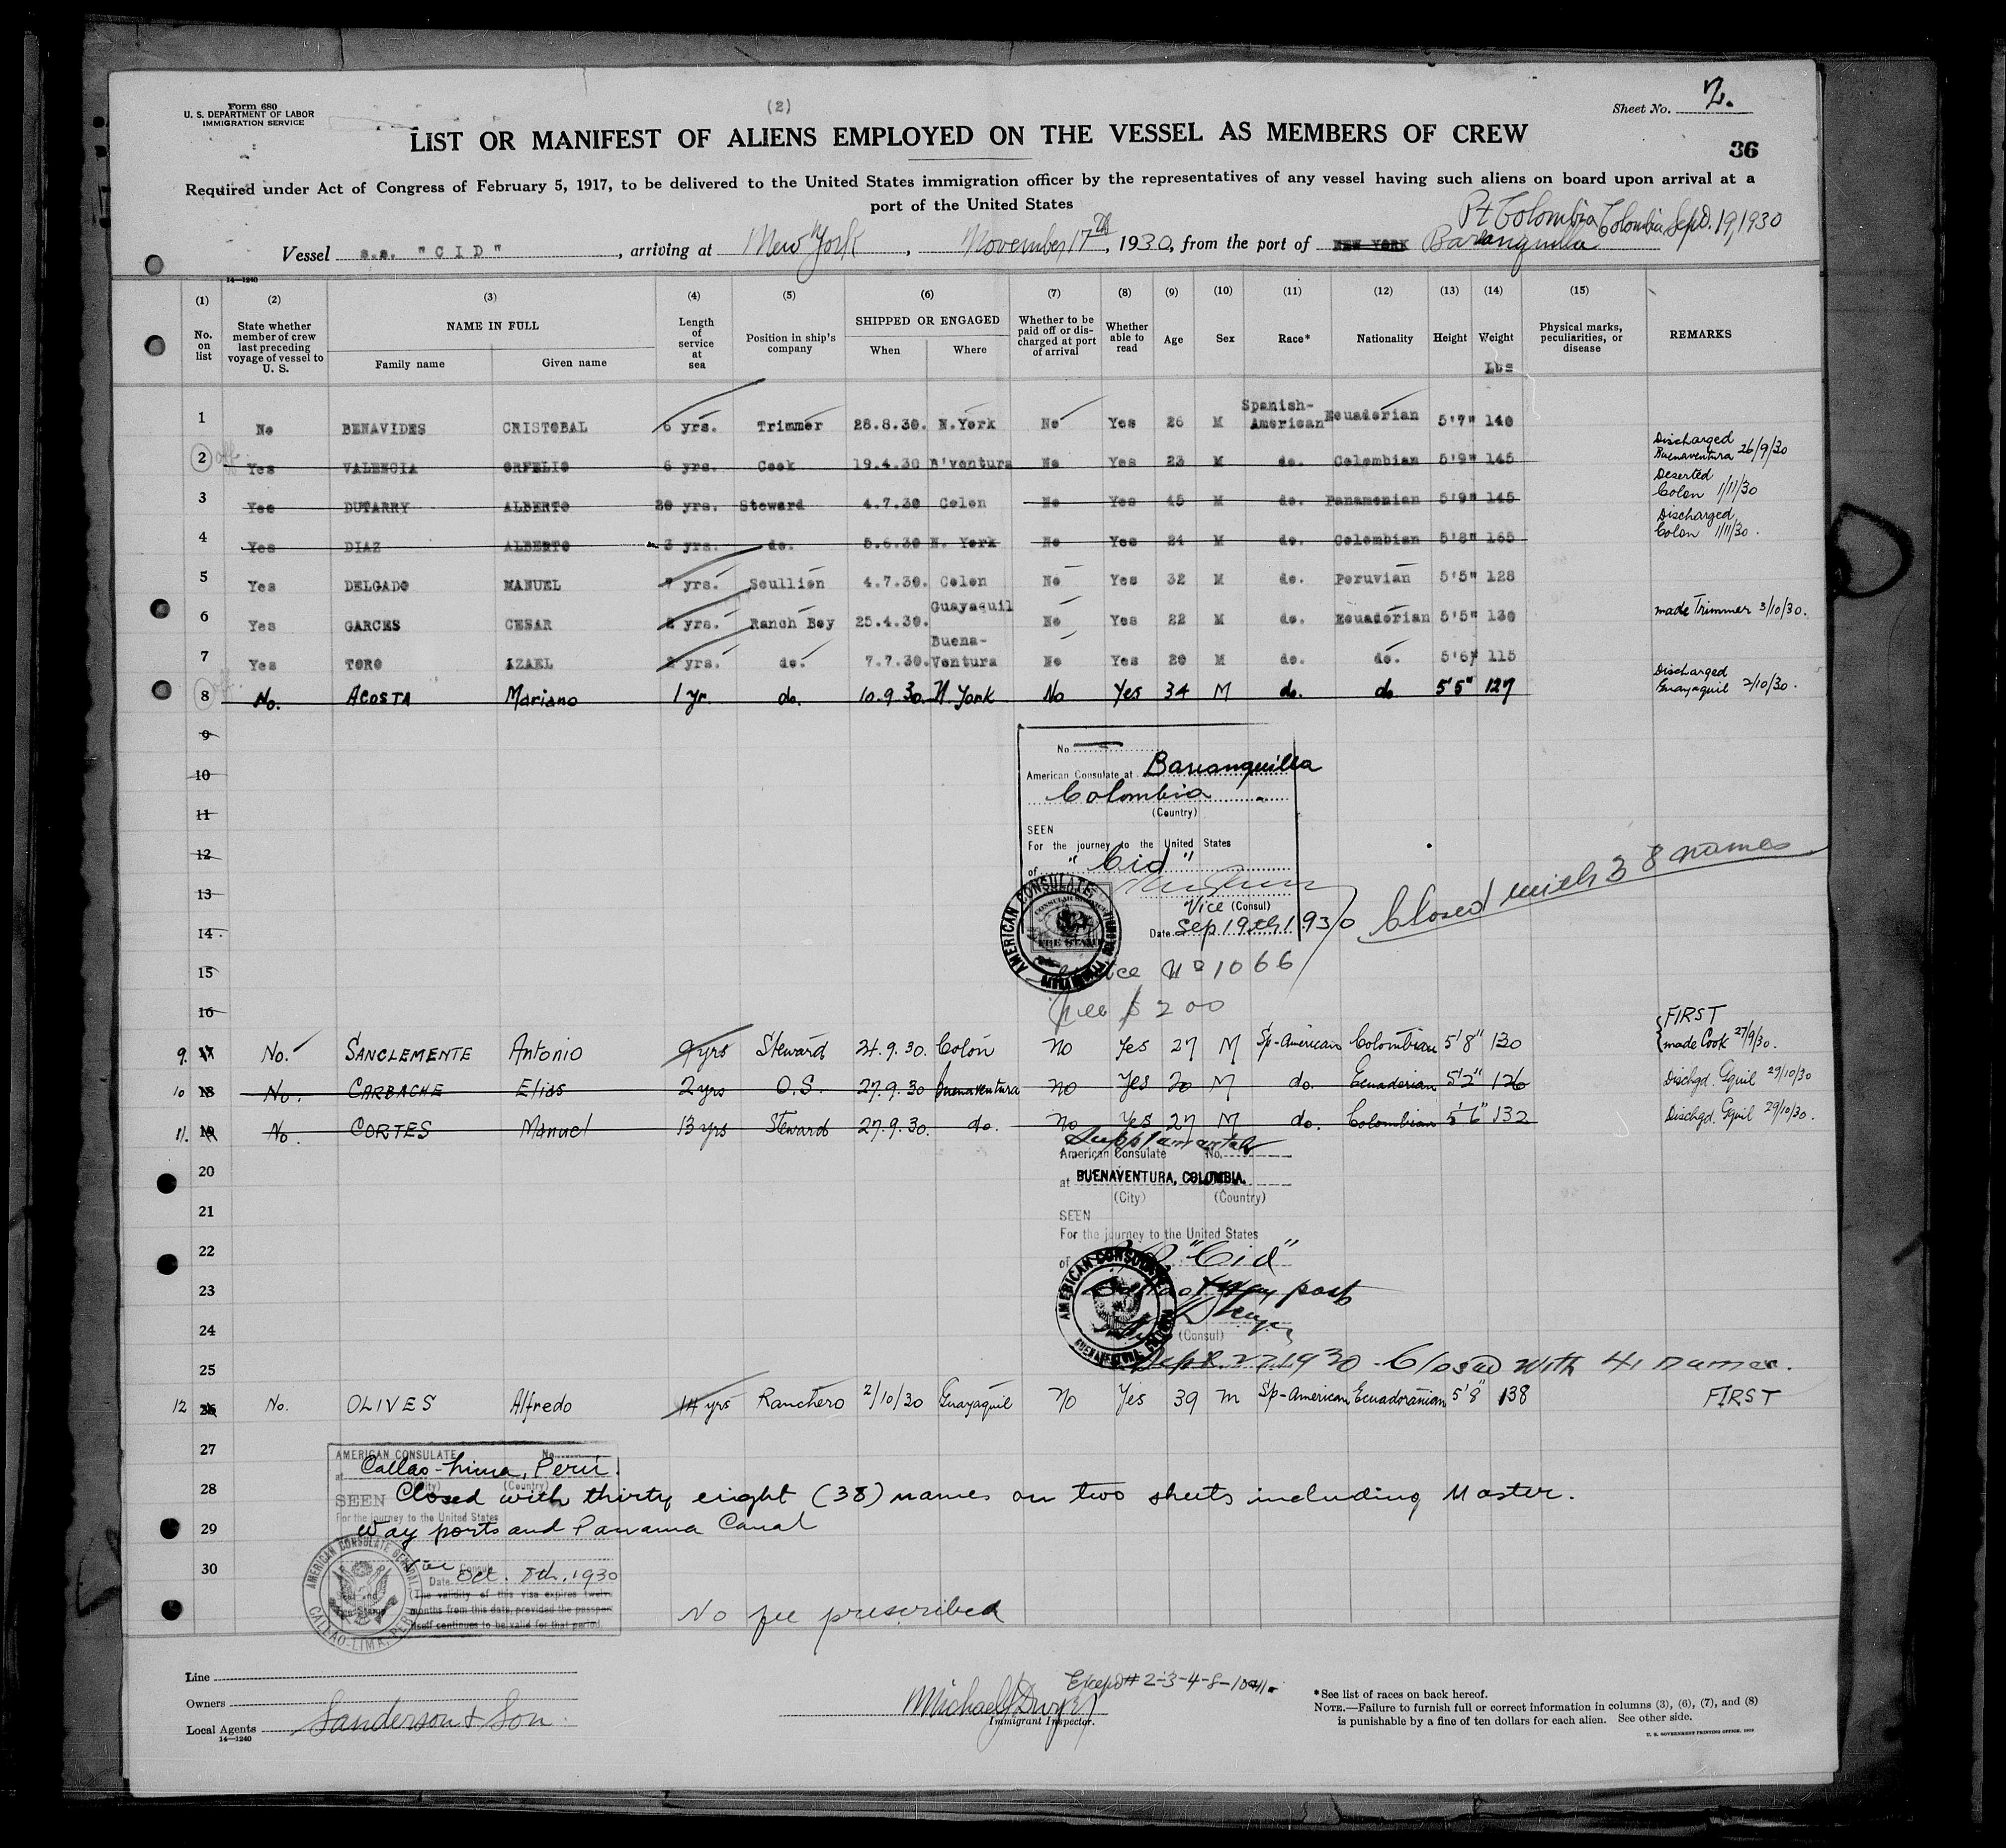 Form 680
U. S. DEPARTMENT OF LABOR
IMMIGRATION SERVICE
(2)
Sheet No. 2.
LIST OR MANIFEST OF ALIENS EMPLOYED ON THE VESSEL AS MEMBERS OF CREW
36
Required under Act of Congress of February 5, 1917, to be delivered to the United States immigration officer by the representatives of any vessel having such aliens on board upon arrival at a
port of the United States
Pt Colombia Colombia Sept. 19, 1930
Vessel s.s. "CID", arriving at New York, November 17th, 1930, from the port of NEW YORK Barranquilla
14—1240
(1) (2) (3) (4) (5) (6) (7) (8) (9) (10) (11) (12) (13) (14) (15)
No. on list
State whether member of crew last preceding voyage of vessel to U. S.
NAME IN FULL
Family name Given name
Length of service at sea
Position in ship's company
SHIPPED OR ENGAGED
When Where
Whether to be paid off or discharged at port of arrival
Whether able to read
Age Sex Race* Nationality Height Weight
Lbs
Physical marks, peculiarities, or disease
REMARKS
1 No BENAVIDES CRISTOBAL 6 yrs. Trimmer 28.8.30. N.York No Yes 26 M Spanish-American Ecuadorian 5'7" 140
2 Yes VALENCIA ORFELIO 6 yrs. Cook 19.4.30 B'ventura No Yes 23 M do. Colombian 5'9" 145 Discharged Buenaventura 26/9/30
3 Yes DUTARRY ALBERTO 20 yrs. Steward 4.7.30 Colon No Yes 45 M do. Panamanian 5'9" 145 Deserted Colon 1/11/30
4 Yes DIAZ ALBERTO 3 yrs. do. 5.6.30 N. York No Yes 24 M do. Colombian 5'8" 165 Discharged Colon 1/11/30.
5 Yes DELGADO MANUEL 7 yrs. Scullion 4.7.30. Colon No Yes 32 M do. Peruvian 5'5" 128
6 Yes GARCES CESAR 2 yrs. Ranch Boy 25.4.30. Guayaquil No Yes 22 M do. Ecuadorian 5'5" 130 made Trimmer 3/10/30.
7 Yes TORO AZAEL 2 yrs. do. 7.7.30. Buena-Ventura No Yes 20 M do. do. 5'6" 115
8 No. ACOSTA Mariano 1 yr. do. 10.9.30. N. York No Yes 34 M do. do 5'5" 127 Discharged Guayaquil 2/10/30.
9
10
11
12
13
14
15
16
No
American Consulate at Barranquilla
Colombia
(Country)
SEEN
For the journey to the United States
of "Cid"
Vice (Consul)
Date Sep 19th 1930
AMERICAN CONSULATE
FEE STAMP
Closed with 38 names
No 1066
Fee $ 2 00
9. 17 No. SANCLEMENTE Antonio 9 yrs Steward 24.9.30. Colón No Yes 27 M Sp-American Colombian 5'8" 130 FIRST made Cook 27/9/30.
10 18 No. CARBACHE Elias 2 yrs O.S. 27.9.30 Buenaventura no Yes 20 M do. Ecuadorian 5'2" 126 Dischgd. Gquil 29/10/30
11. 19 No. CORTES Manuel 13 yrs Steward 27.9.30. do. no Yes 27 M do. Colombian 5'6" 132 Dischgd. Gquil 29/10/30.
20
21
22
23
24
25
Supplemental
American Consulate No.
at BUENAVENTURA, COLOMBIA.
(City) (Country)
SEEN
For the journey to the United States
of "Cid"
way ports
(Consul)
AMERICAN CONSULATE
BUENAVENTURA, COLOMBIA
Sept. 27 1930 - Closed with 41 names.
12 26 No. OLIVES Alfredo 14 yrs Ranchero 2/10/30 Guayaquil No Yes 39 m Sp-American Ecuadoranian 5'8" 138 FIRST
27
28
29
30
AMERICAN CONSULATE No.
at Callao-Lima, Perú.
(City) (Country)
SEEN Closed with thirty eight (38) names on two sheets including Master.
For the journey to the United States
Way ports and Panama Canal
Vice Consul
Date Oct. 8th, 1930
(The validity of this visa expires twelve
months from this date, provided the passport
itself continues to be valid for that period.
AMERICAN CONSULATE GENERAL
CALLAO-LIMA, PERU
No fee prescribed
Line
Owners
Local Agents Sanderson & Son.
14—1240
Except # 2-3-4-8-10-11
Michael J Dwyer
Immigrant Inspector.
*See list of races on back hereof.
NOTE.—Failure to furnish full or correct information in columns (3), (6), (7), and (8)
is punishable by a fine of ten dollars for each alien. See other side.
U. S. GOVERNMENT PRINTING OFFICE